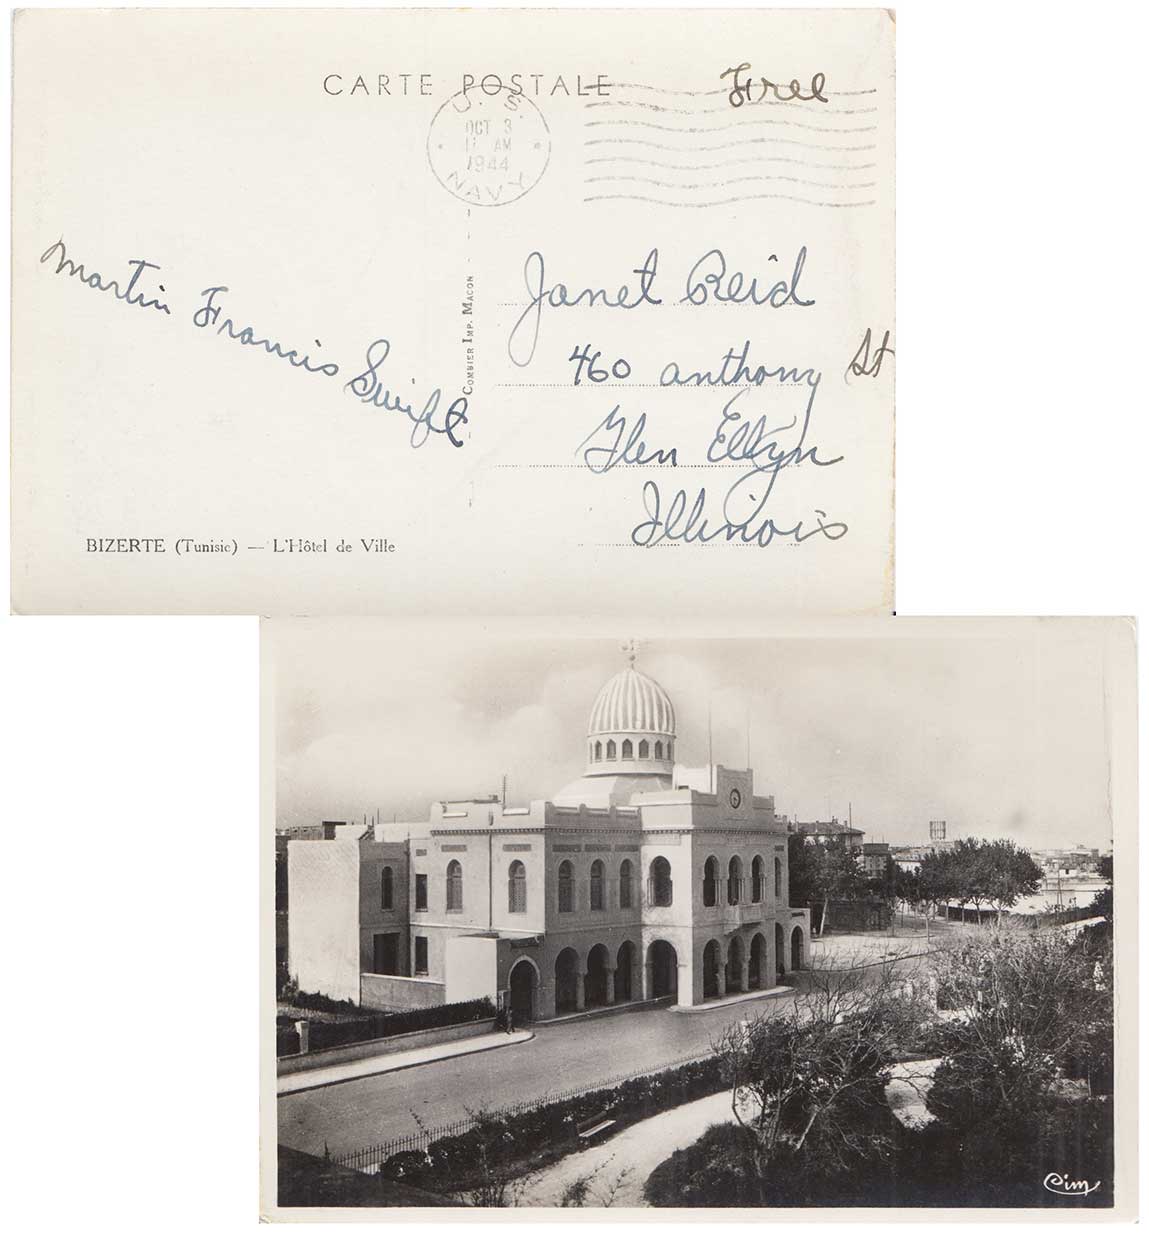 CARTE POSTALE
Free
U. S.
OCT 3
11 AM
1944
NAVY
Martin Francis Swift
COMBIER IMP. MACON
Janet Reid
460 anthony St
Glen Ellyn
Illinois
BIZERTE (Tunisie) — L'Hôtel de Ville
Cim